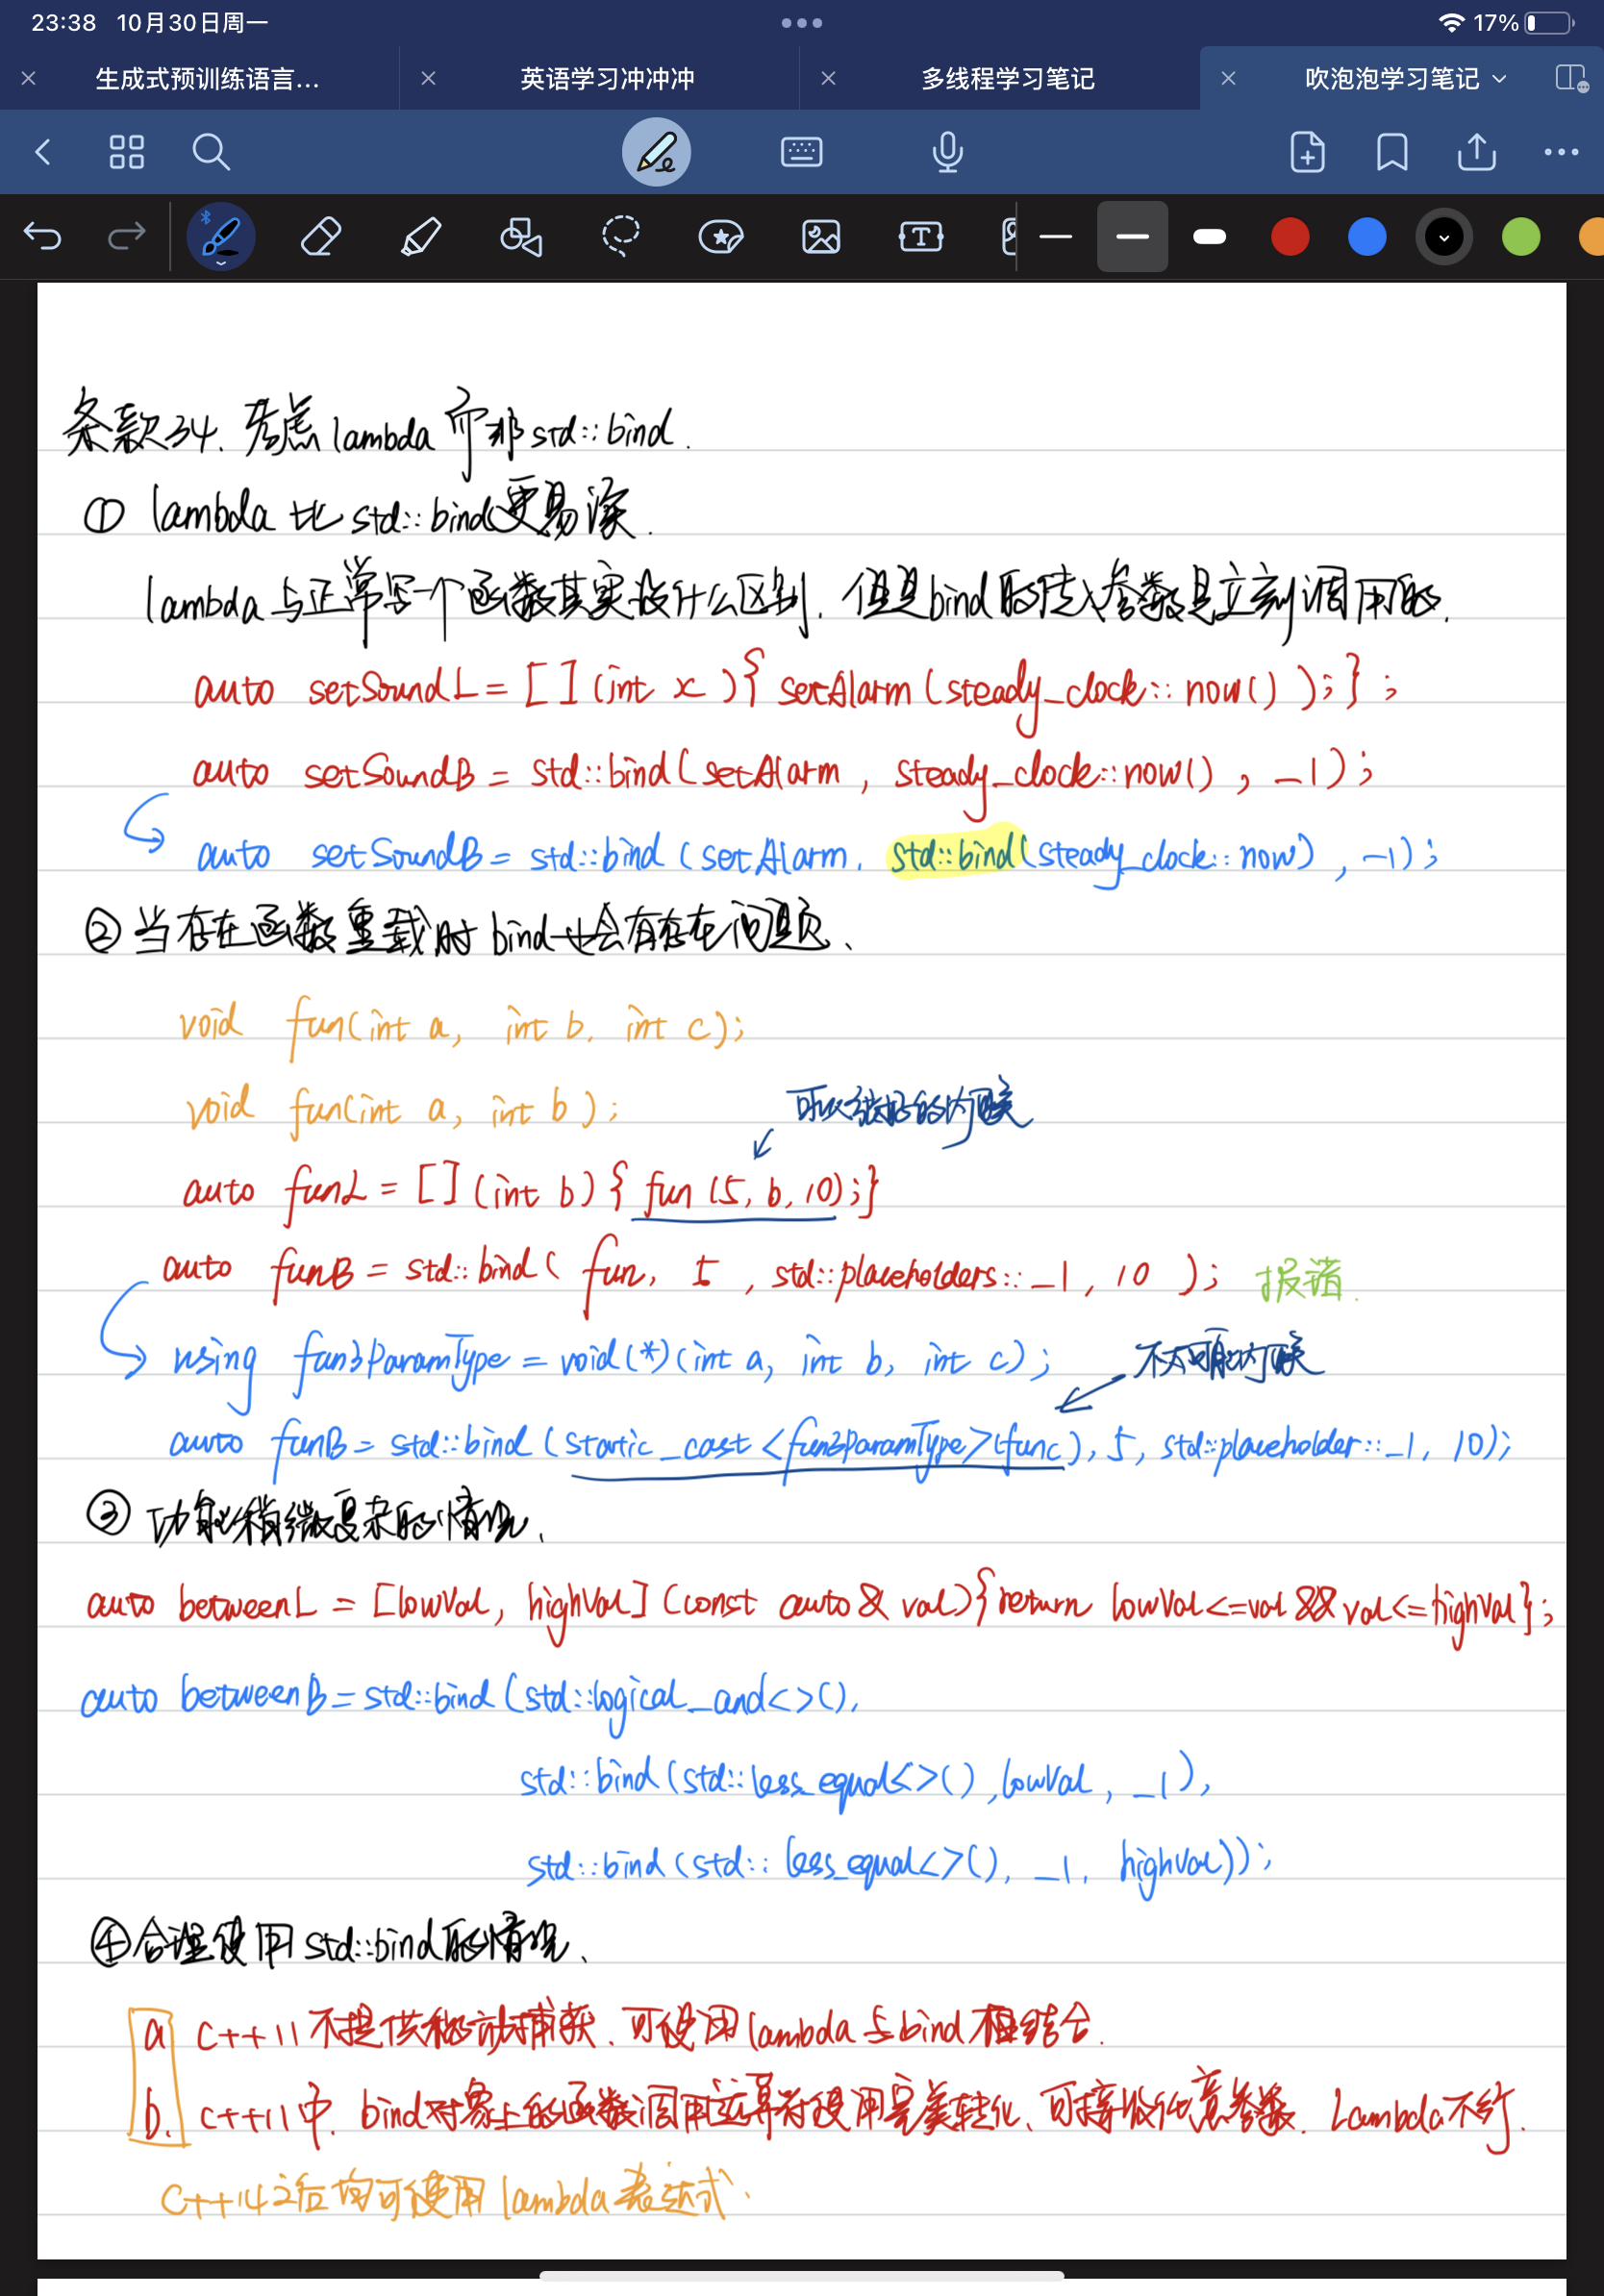 23:38 10月30日周一
17%
生成式预训练语言...
英语学习冲冲冲
多线程学习笔记
吹泡泡学习笔记
条款34. 考虑lambda而非std::bind.
① lambda 比 std::bind更易读.
lambda与正常写一个函数其实没什么区别. 但是bind的传入参数是立刻调用的.
auto setSoundL = [](int x){ setAlarm(steady_clock::now());};
auto setSoundB = std::bind(setAlarm, steady_clock::now(), _1);
auto setSoundB = std::bind(setAlarm, std::bind(steady_clock::now), _1);
②当存在函数重载时bind也会有存在问题、
void fun(int a, int b, int c);
void fun(int a, int b);
可以很好的内联
auto funL = [](int b){ fun(5, b, 10);}
auto funB = std::bind(fun, 5, std::placeholders::_1, 10); 报错.
using fun3ParamType = void(*)(int a, int b, int c); 不太可能内联
auto funB = std::bind(startic_cast<fun3ParamType>(func), 5, std::placeholder::_1, 10);
③ 功能稍微复杂的情况、
auto betweenL = [lowVal, highVal](const auto& val){return lowVal<=val && val<=highVal};
auto betweenB = std::bind(std::logical_and<>(),
std::bind(std::less_equal<>(), lowVal, _1),
std::bind(std::less_equal<>(), _1, highVal));
④合理使用std::bind的情况、
a C++11 不提供移动捕获、可使用lambda与bind相结合.
b. C++11中, bind对象上的函数调用运算符使用完美转化、可接收任意参数. Lambda不行.
C++14之后均可使用lambda表达式.